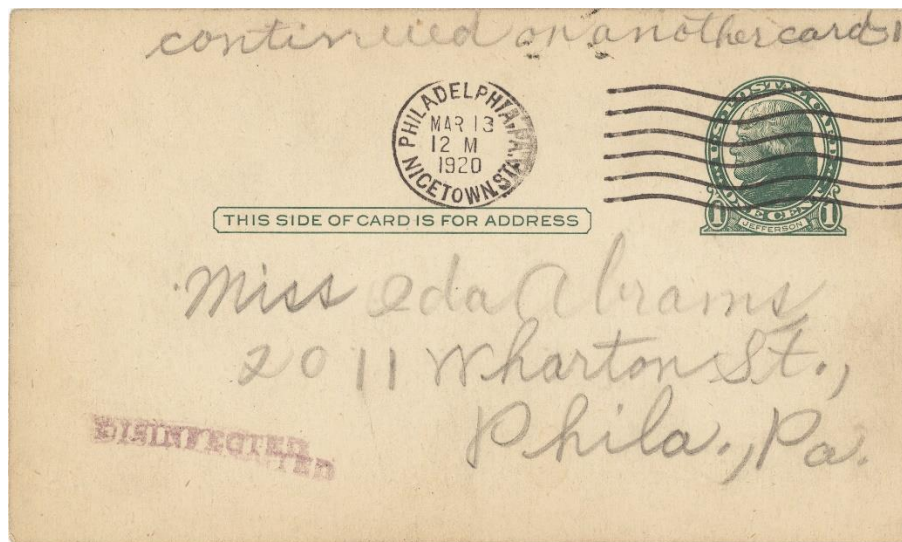 continued on another card
PHILADELPHIA, PA.
MAR 13
12 M
1920
NICETOWN STA.
U.S. POSTAL CARD
ONE CENT
1 JEFFERSON 1
THIS SIDE OF CARD IS FOR ADDRESS
Miss Ida Abrams
2011 Wharton St.,
Phila., Pa.
DISINFECTED
TED